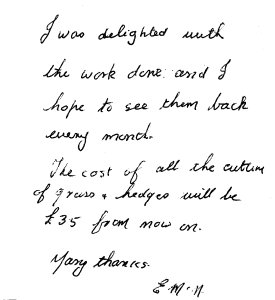 I was delighted with
the work done and I
hope to see them back
every month.
The cost of all the cutting
of grass & hedges will be
£35 from now on.
Many thanks.
E. M. N.